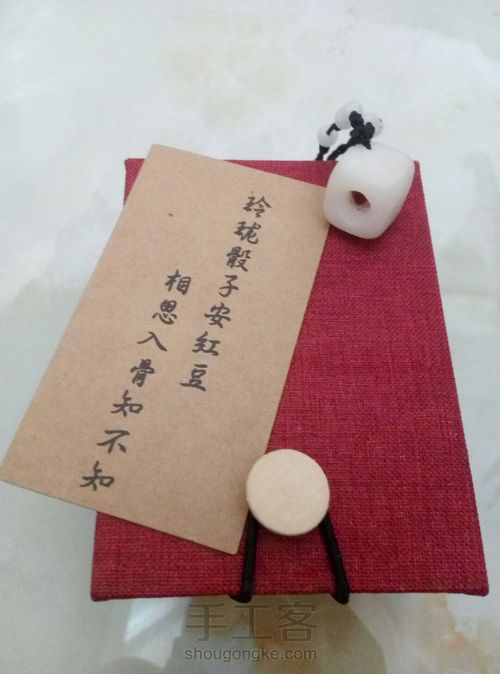 玲珑骰子安红豆
相思入骨知不知
手工客
shougongke.com